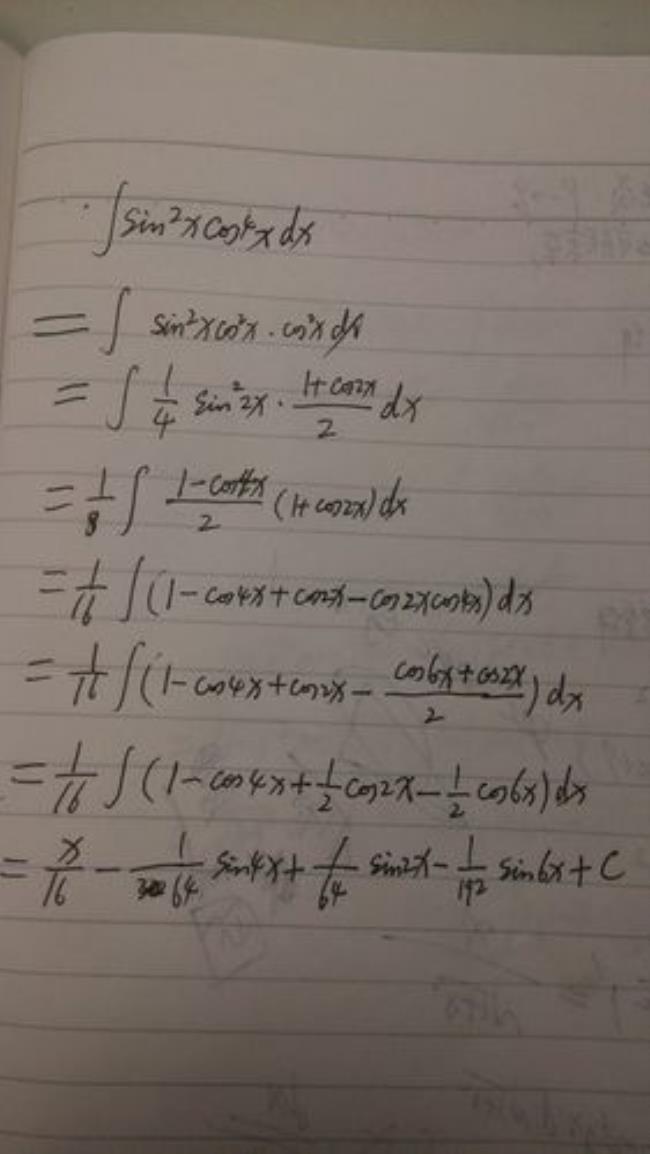 ∫sin²xcos⁴xdx
=∫ sin²xcos²x·cos²xdx
=∫ 1/4 sin²2x· (1+cos2x)/2 dx
=1/8∫ (1-cos4x)/2 (1+cos2x)dx
=1/16∫(1-cos4x+cos2x-cos2xcos4x)dx
=1/16∫(1-cos4x+cos2x- (cos6x+cos2x)/2 )dx
=1/16∫(1-cos4x+1/2cos2x-1/2cos6x)dx
=x/16 - 1/64 sin4x+1/64 sin2x-1/192 sin6x+C